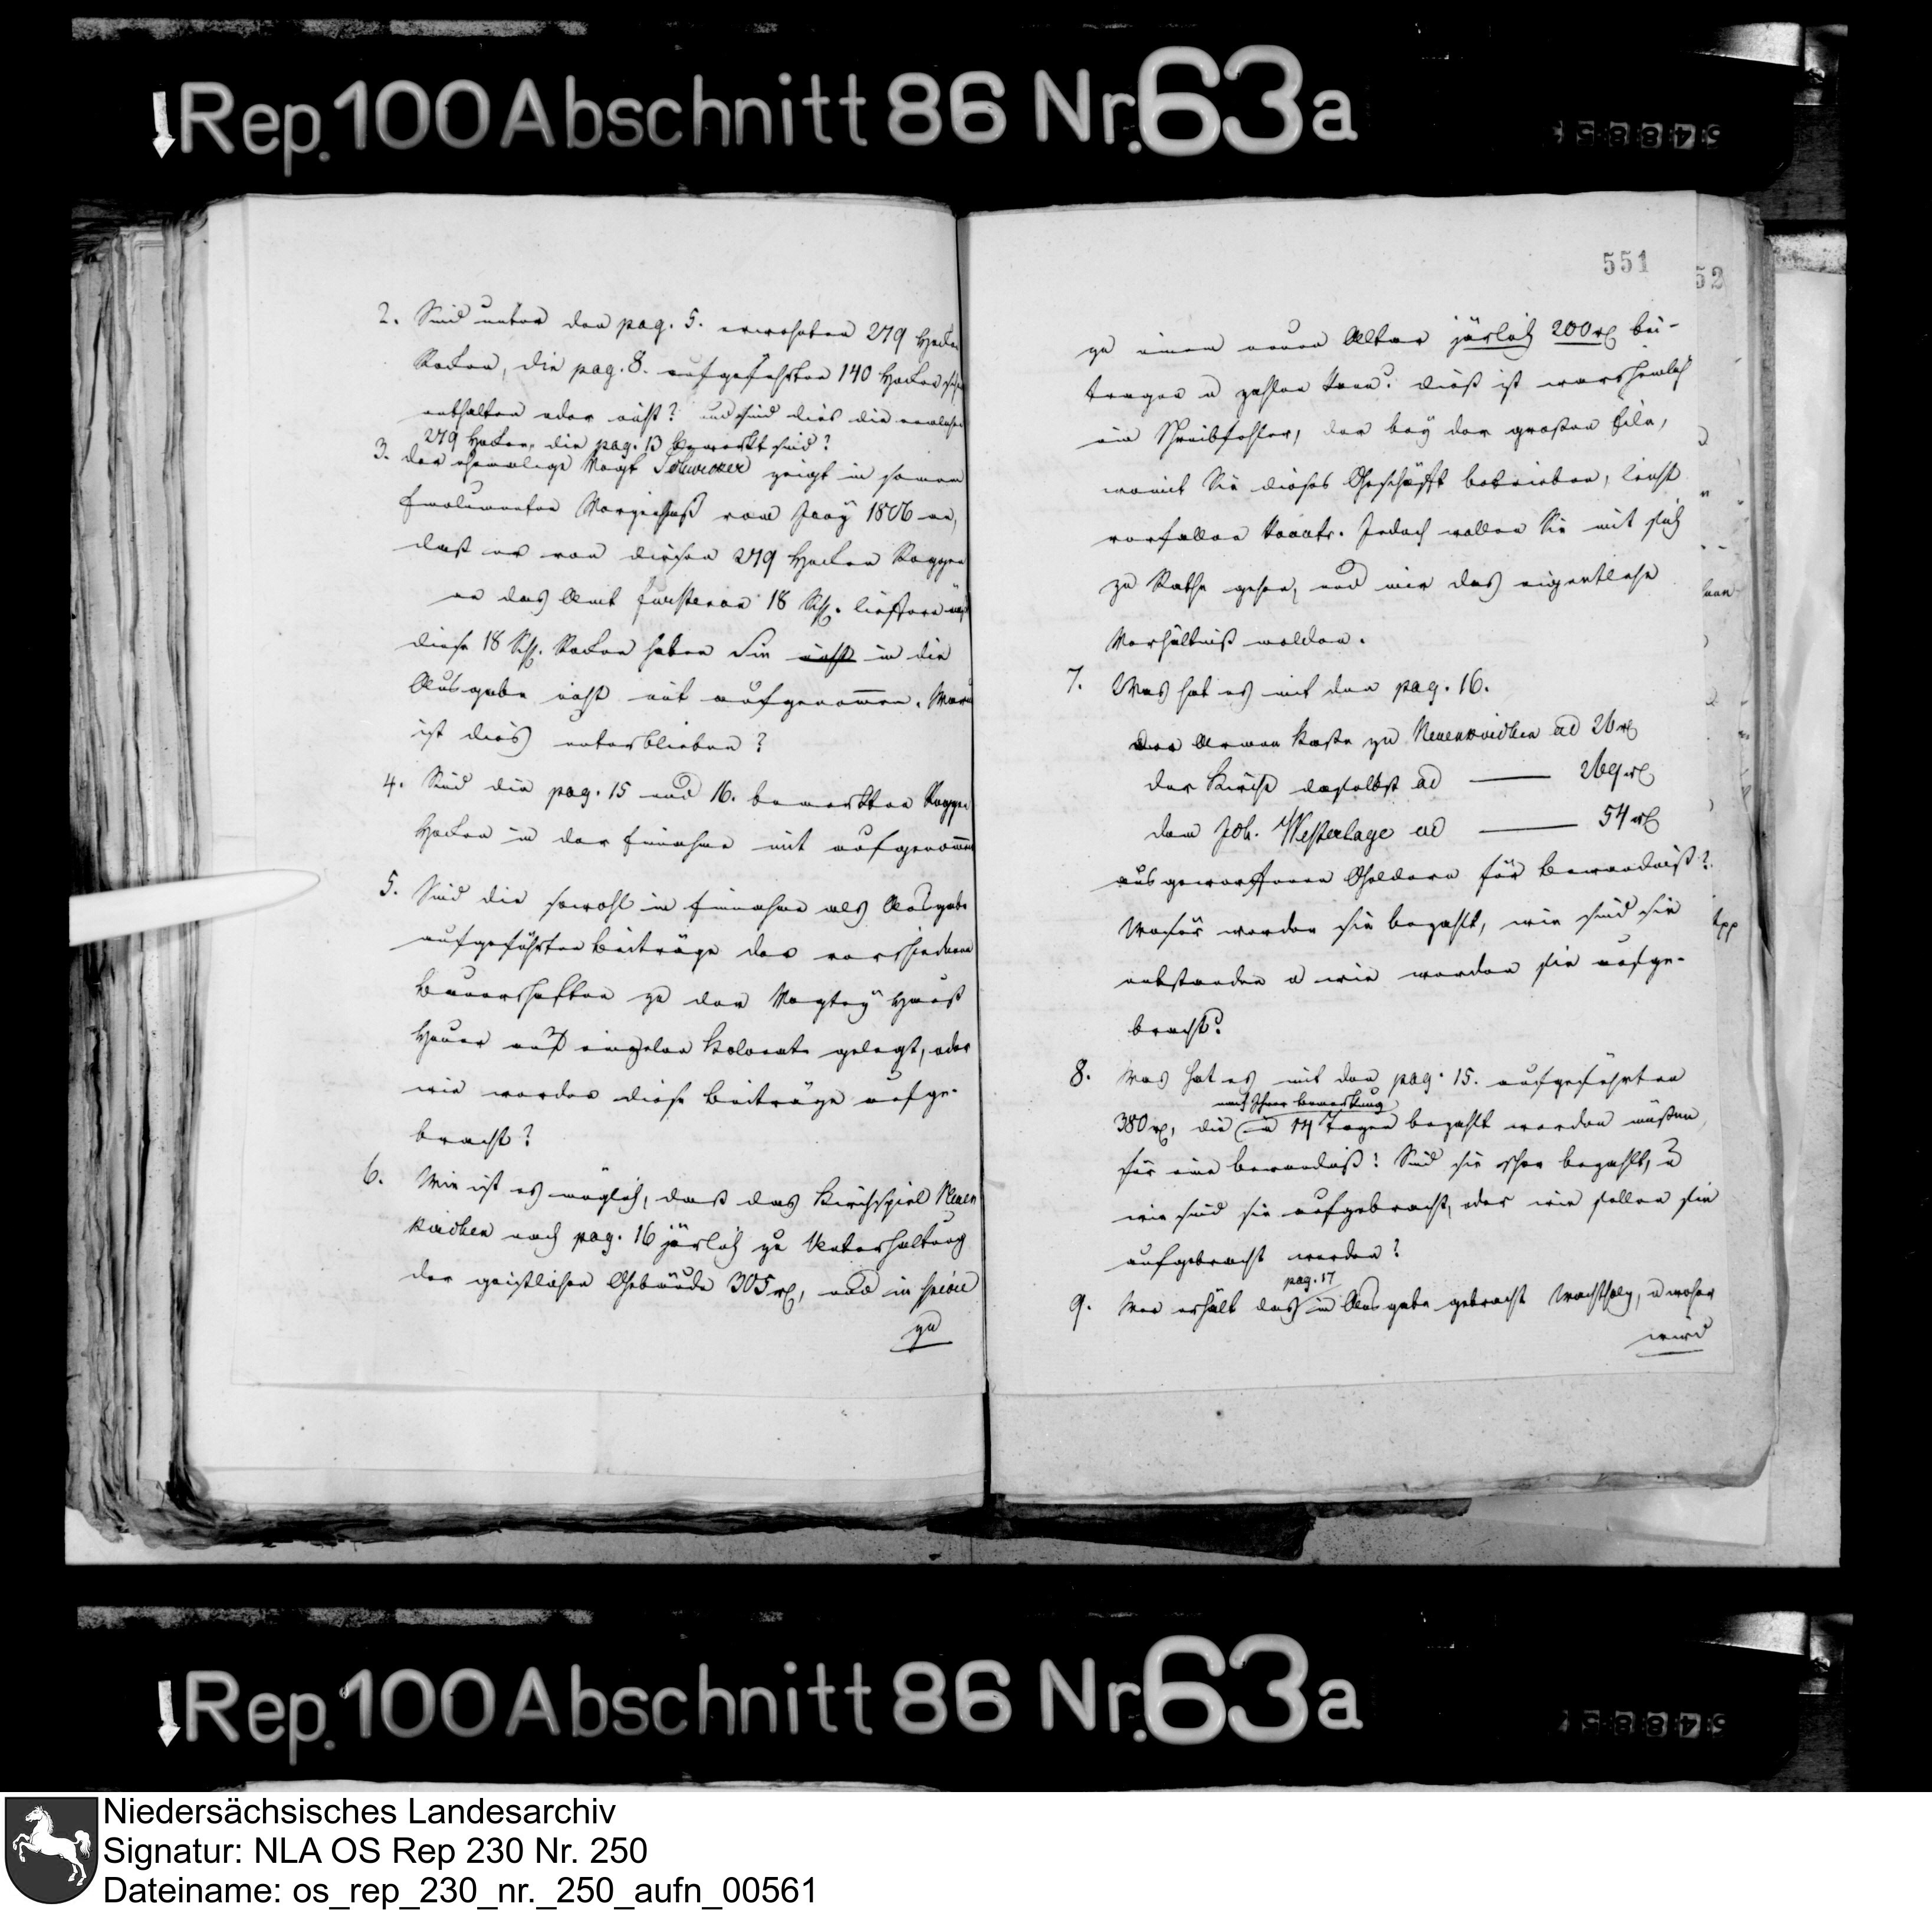 Rep. 100 Abschnitt 86 Nr. 63a
2. Sind unter den pag. 5. erwehnten 279 Hocken
Rocken, die pag. 8. aufgefuhrten 140 Hocken schon
enthalten oder nicht? und sind dies die nemlichen
279 Hocken, die pag. 13 bemerkt sind?
3. der ehemalige Vogt Schwicker zeigt in seinem
Emolumenten Verzeichniß vom Jany 1806 an,
daß er von diesen 279 Hocken Roggen
an das Amt furstenau 18 Sch. liefern muß
diese 18 Sch. Rocken haben Sie nicht in die
Ausgabe nicht mit aufgenommen. Warum
ist dies unterblieben?
4. Sind die pag. 15 und 16. bemerkten Roggen
Hocken in der Einnahme mit aufgenommen
5. Sind die sowohl in Einnahme als Ausgabe
aufgeführten Beiträge der verschiedenen
Bauerschaften zu der Vogtey Hauß
Heuer auf einzelne Kolonate gelegt, oder
wie werden diese Beiträge aufge-
bracht?
6. Wie ist es möglich, daß das Kirchspiel Neuen
kirchen nach pag. 16 järlich zu Unterhaltung
der geistlichen Gebäude 305 rt, und in specie
zu
551
52
zu einem neuen Altar järlich 200 rt bei-
tragen u zahlen kann? dieß ist warscheinlich
ein Schreibfehler, der bey der großen Eile,
womit Sie dieses Geschäfft betrieben, leicht
vorfallen konnte. Jedoch wollen Sie mit sich
zu Rathe gehen, und mir das eigentliche
Verhältniß melden.
7. Was hat es mit den pag. 16.
den Armen Kasten zu Neuenkirchen ad 26 rt
der Kirche daselbst ad — 269 rt
dem Joh. Westerlage ad — 54 rt
ausgeworffenen Geldern für Bewandniß?
Wofür werden sie bezahlt, wie sind sie
entstanden u wie werden sie aufge-
bracht?
8. Was hat es mit den pag. 15. aufgeführten
nach Ihrer Bemerkung
380 rt, die in 14 Tagen bezahlt werden müßen,
für eine Bewandniß? Sind sie schon bezahlt, u
wie sind sie aufgebracht, oder wie sollen sie
aufgebracht werden?
pag. 17
9. Wer erhält das in Ausgabe gebracht Wachtholz, u woher
wird
Rep. 100 Abschnitt 86 Nr. 63a
Niedersächsisches Landesarchiv
Signatur: NLA OS Rep 230 Nr. 250
Dateiname: os_rep_230_nr._250_aufn_00561